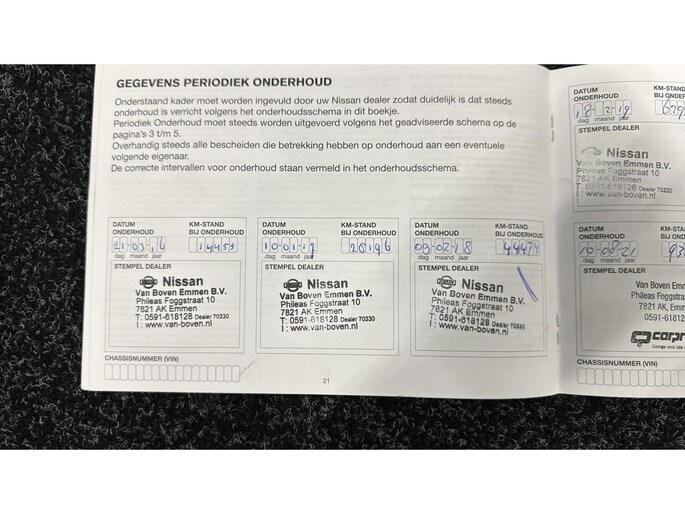 GEGEVENS PERIODIEK ONDERHOUD
Onderstaand kader moet worden ingevuld door uw Nissan dealer zodat duidelijk is dat steeds
onderhoud is verricht volgens het onderhoudsschema in dit boekje.
Periodiek Onderhoud moet steeds worden uitgevoerd volgens het geadviseerde schema op de
pagina's 3 t/m 5.
Overhandig steeds alle bescheiden die betrekking hebben op onderhoud aan een eventuele
volgende eigenaar.
De correcte intervallen voor onderhoud staan vermeld in het onderhoudsschema.
DATUM ONDERHOUD KM-STAND BIJ ONDERHOUD
21-03-16 14455
dag maand jaar
STEMPEL DEALER
Nissan
Van Boven Emmen B.V.
Phileas Foggstraat 10
7821 AK Emmen
T: 0591-618128 Dealer 70330
I: www.van-boven.nl
CHASSISNUMMER (VIN)
DATUM ONDERHOUD KM-STAND BIJ ONDERHOUD
10-01-17 26196
dag maand jaar
STEMPEL DEALER
Nissan
Van Boven Emmen B.V.
Phileas Foggstraat 10
7821 AK Emmen
T: 0591-618128 Dealer 70330
I: www.van-boven.nl
DATUM ONDERHOUD KM-STAND BIJ ONDERHOUD
09-02-18
dag maand jaar
STEMPEL DEALER
Nissan
Van Boven Emmen B.V.
Phileas Foggstraat 10
7821 AK Emmen
T: 0591-618128 Dealer 70330
I: www.van-boven.nl
21
DATUM ONDERHOUD KM-STAND BIJ OND
18-2-19 629
dag maand jaar
STEMPEL DEALER
Nissan
Van Boven Emmen B.V.
Phileas Foggstraat 10
7821 AK Emmen
T: 0591-618128 Dealer 70330
I: www.van-boven.nl
DATUM ONDERHOUD KM-STAND BIJ ONDE
10-08-21 93
dag maand jaar
STEMPEL DEALER
Van Boven Emm
Phileas Foggstraat 10
7821 AK Emmen
0591-618128
carpr
CHASSISNUMMER (VIN)